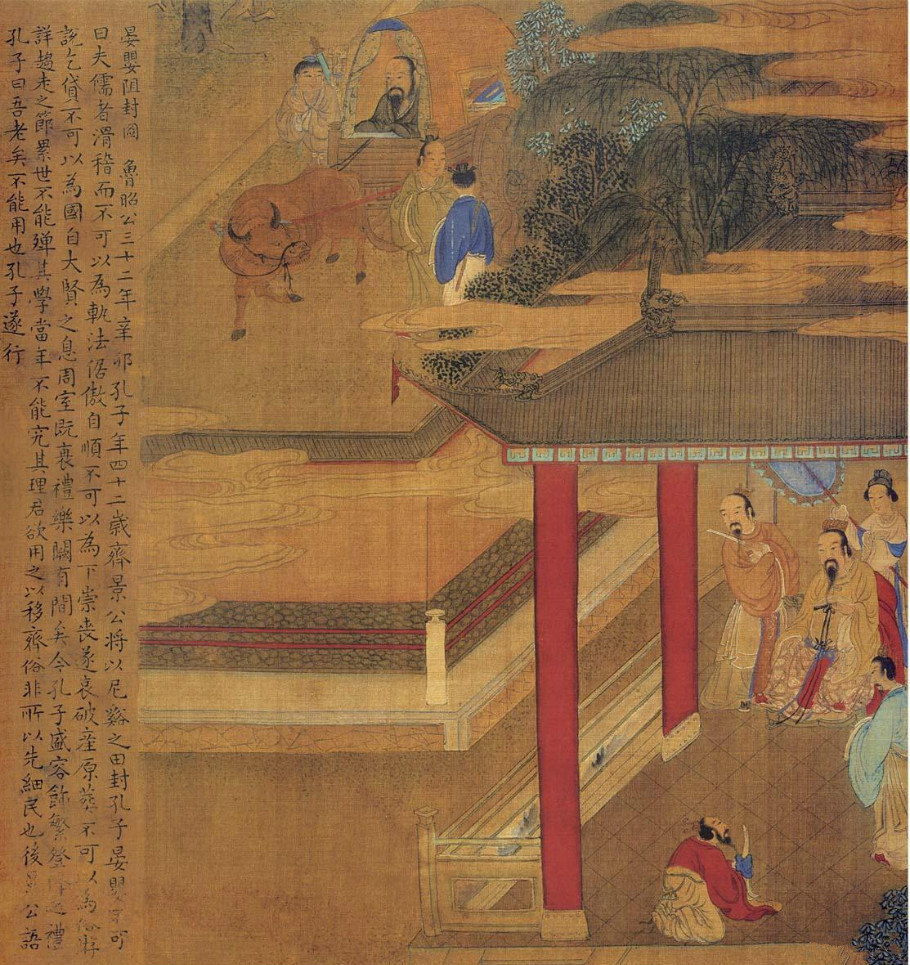 晏嬰阻封圖 魯昭公三十二年辛卯孔子年四十二歲齊景公将以尼谿之田封孔子晏嬰可
曰夫儒者滑稽而不可以為軌法倨傲自順不可以為下崇喪遂哀破産厚葬不可以為俗游
說乞貸不可以為國自大賢之息周室既衰禮樂闕有間矣今孔子盛容飾繁登之禮
詳趨走之節累世不能殫其學當年不能究其理君欲用之以移齊俗非所以先細民也後景公語
孔子曰吾老矣不能用也孔子遂行